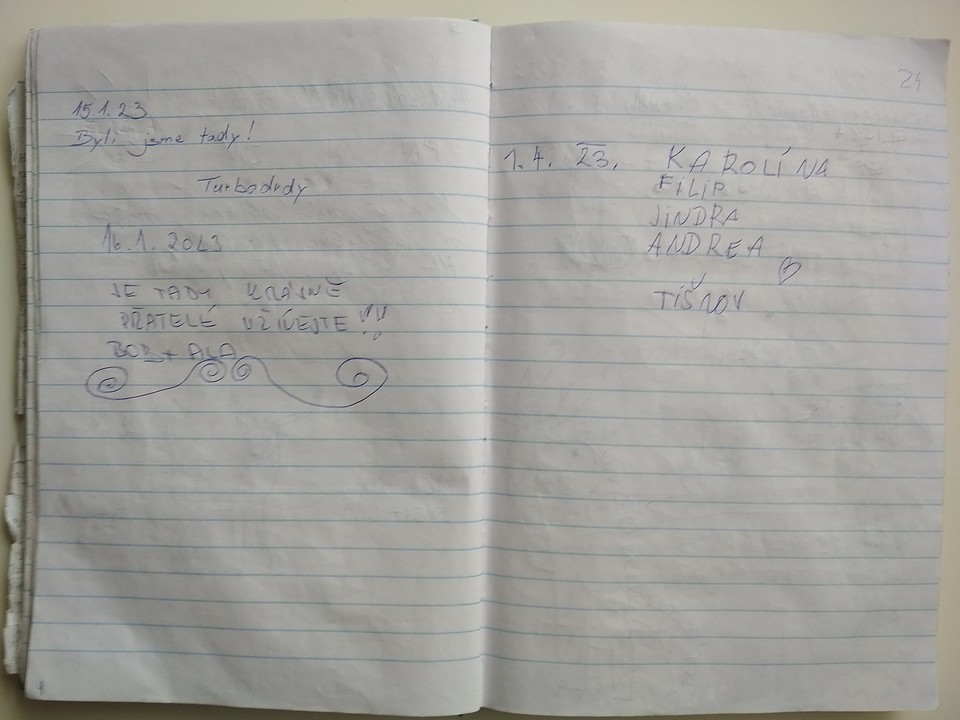 15.1.23
Byli jsme tady!
Turbodrdy
16.1.2023
JE TADY KRÁSNĚ
PŘATELÉ UŽÍVEJTE!!
BOB + ALA
24
1.4. 23. KAROLÍNA
FILIP
JINDRA
ANDREA
TIŠNOV